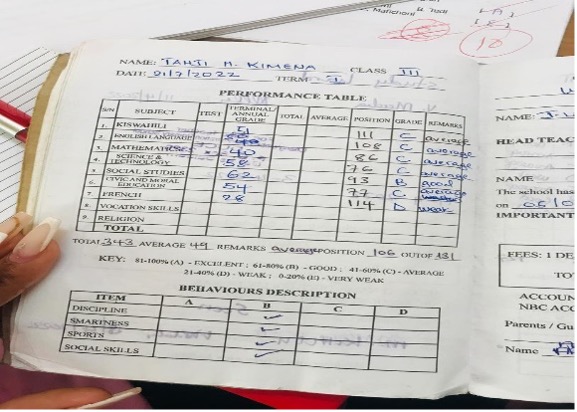 Mafichoni B. Todi
10
NAME: TANJI M. KIMENA CLASS III
DATE: 01/7/2022 TERM I
PERFORMANCE TABLE
S/N SUBJECT TEST TERMINAL/ANNUAL GRADE TOTAL AVERAGE POSITION GRADE REMARKS
1. KISWAHILI 51 111 C average
2. ENGLISH LANGUAGE 108 C average
3. MATHEMATICS 40 86 C average
4. SCIENCE & TECHNOLOGY 58 76 C average
5. SOCIAL STUDIES 62 93 B good
6. CIVIC AND MORAL EDUCATION 54 77 C average
7. FRENCH 28 114 D weak
8. VOCATION SKILLS
9. RELIGION
TOTAL
TOTAL 343 AVERAGE 49 REMARKS average POSITION 106 OUT OF 131
KEY: 81-100% (A) - EXCELENT ; 61-80% (B) - GOOD ; 41-60% (C) - AVERAGE
21-40% (D) - WEAK ; 0-20% (E) - VERY WEAK
BEHAVIOURS DESCRIPTION
ITEM A B C D
DISCIPLINE ✓
SMARTNESS ✓
SPORTS ✓
SOCIAL SKILLS ✓
NAME:
HEAD TEAC
NAME
The school has
on
IMPORTANT
FEES: 1 DE
TO
ACCOUN
NBC ACC
Parents / Gu
Name